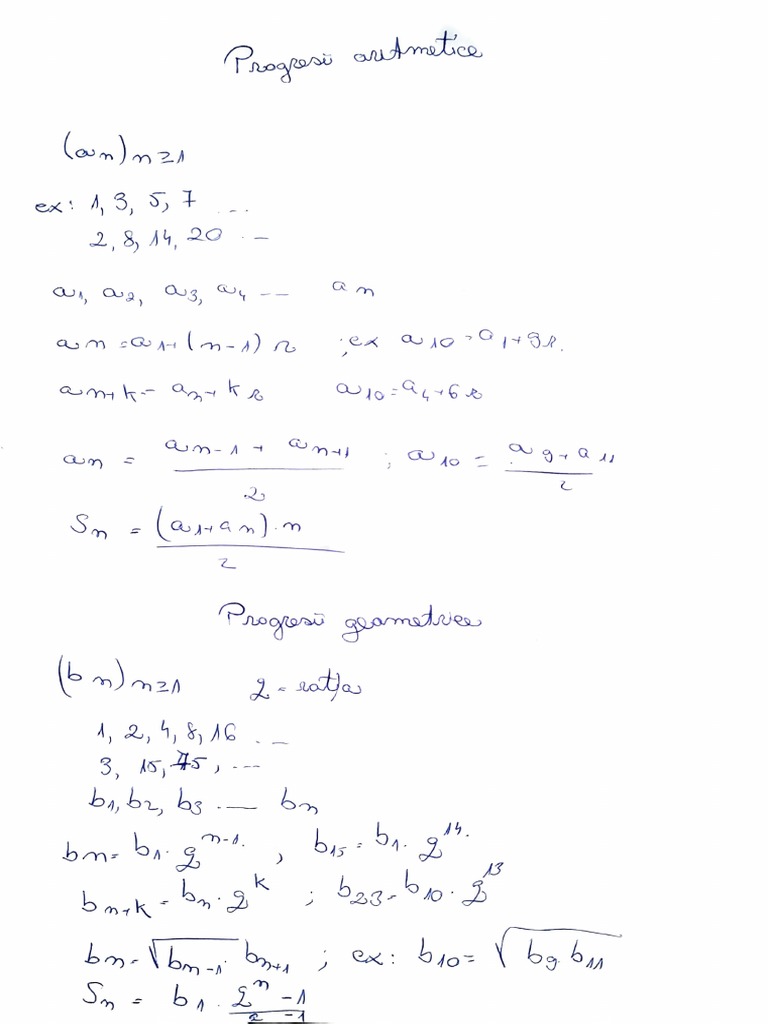 Progresii aritmetice
(an) n≥1
ex: 1, 3, 5, 7 ...
2, 8, 14, 20 ...
a1, a2, a3, a4 -- an
an = a1+(n-1) r ; ex a10 = a1+9r.
an+k = an+kr a10 = a4+6r
an = (an-1 + an+1)/2 ; a10 = (a9+a11)/2
Sn = (a1+an)·n/2
Progresii geometrice
(bn) n≥1 q = rația
1, 2, 4, 8, 16 ...
3, 15, 75, ...
b1, b2, b3 ... bn
bn = b1·q^n-1. , b15 = b1·q^14.
bn+k = bn·q^k ; b23 = b10·q^13
bn = √bn-1·bn+1 ; ex: b10 = √b9·b11
Sn = b1·(q^n -1)/(q-1)